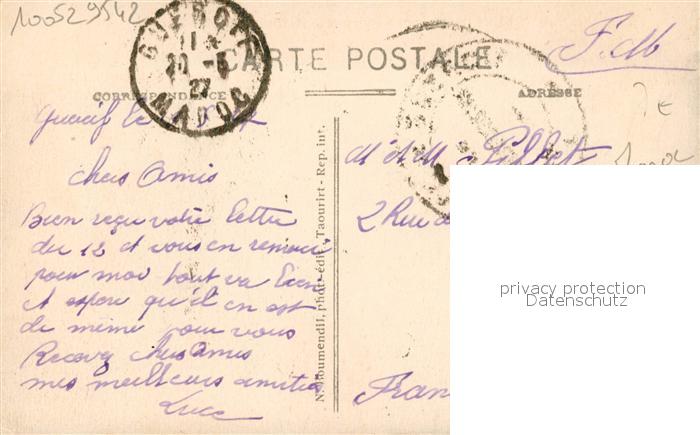 10052 9542
GUERCIF
20 -5
27
MAROC
CARTE POSTALE
F.M
CORRESPONDANCE
ADRESSE
Guercif le
Chers Amis
Bien reçu votre lettre
du 12 et vous en remerci
pour moi tout va bien
et espère qu'il en est
de même pour vous
Recevez chers Amis
mes meilleurs amitiés
N. Boumendil, photo-édit., Taourirt - Rep. int.
M et Mme
2 Rue de
privacy protection
Datenschutz
Fran